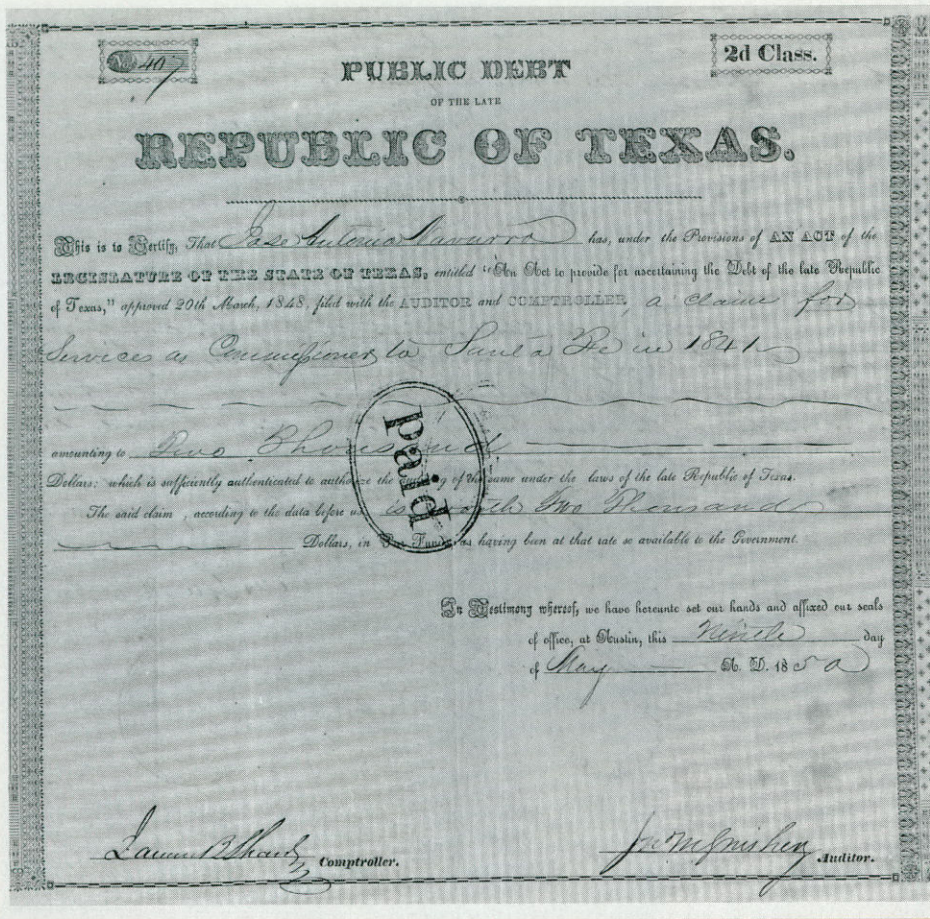 No 407
2d Class.
PUBLIC DEBT
OF THE LATE
REPUBLIC OF TEXAS.
This is to Certify, That Jose Antonio Navarro has, under the Provisions of AN ACT of the
LEGISLATURE OF THE STATE OF TEXAS, entitled "An Act to provide for ascertaining the Debt of the late Republic
of Texas," approved 20th March, 1848, filed with the AUDITOR and COMPTROLLER, a claim for
Services as Commissioner to Santa Fe in 1841
amounting to Two Thousand
Dollars; which is sufficiently authenticated to authorize the of the same under the laws of the late Republic of Texas.
The said claim, according to the data before us is worth Two Thousand
Dollars, in Par Funds, as having been at that rate so available to the Government.
paid
In Testimony whereof, we have hereunto set our hands and affixed our seals
of office, at Austin, this Ninth day
of May A. D. 1850
James B Shaw Comptroller.
Auditor.